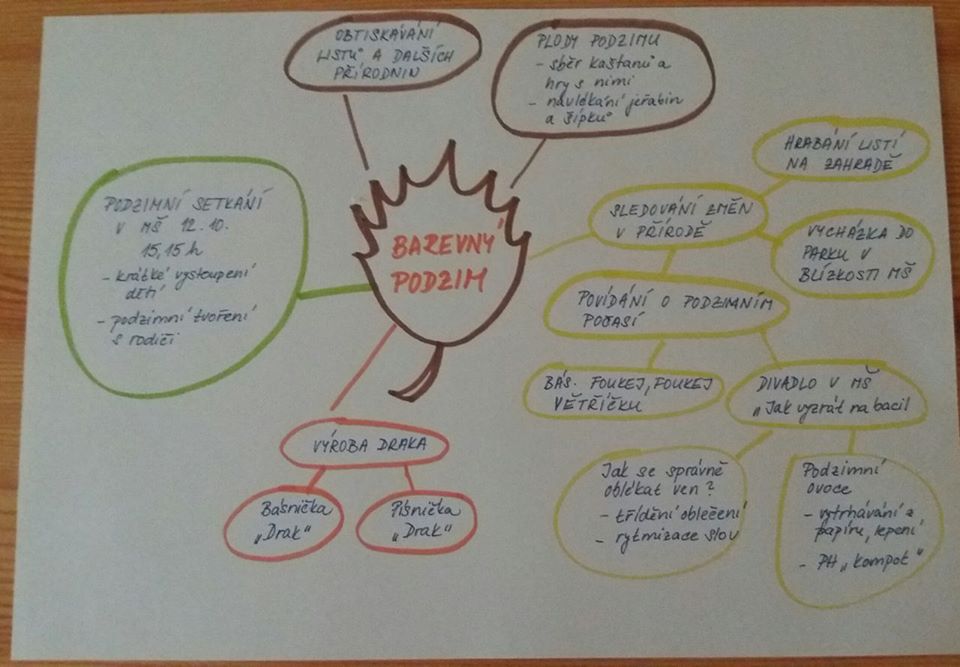 OBTISKÁVÁNÍ
LISTŮ A DALŠÍCH
PŘÍRODNIN
PLODY PODZIMU
- sběr kaštanů a
hry s nimi
- navlékání jeřabin
a šípků
HRABÁNÍ LISTÍ
NA ZAHRADĚ
SLEDOVÁNÍ ZMĚN
V PŘÍRODĚ
VYCHÁZKA DO
PARKU V
BLÍZKOSTI MŠ
PODZIMNÍ SETKÁNÍ
V MŠ 12.10.
15,15 h
- krátké vystoupení
dětí
- podzimní tvoření
s rodiči
BAREVNÝ
PODZIM
POVÍDÁNÍ O PODZIMNÍM
POČASÍ
BÁS. FOUKEJ, FOUKEJ
VĚTŘÍČKU
DIVADLO V MŠ
„Jak vyzrát na bacil
VÝROBA DRAKA
Básnička
„Drak“
Písnička
„Drak“
Jak se správně
oblékat ven?
- třídění oblečení
- rytmizace slov
Podzimní
ovoce
- vytrhávání z
papíru, lepení
- PH „Kompot“